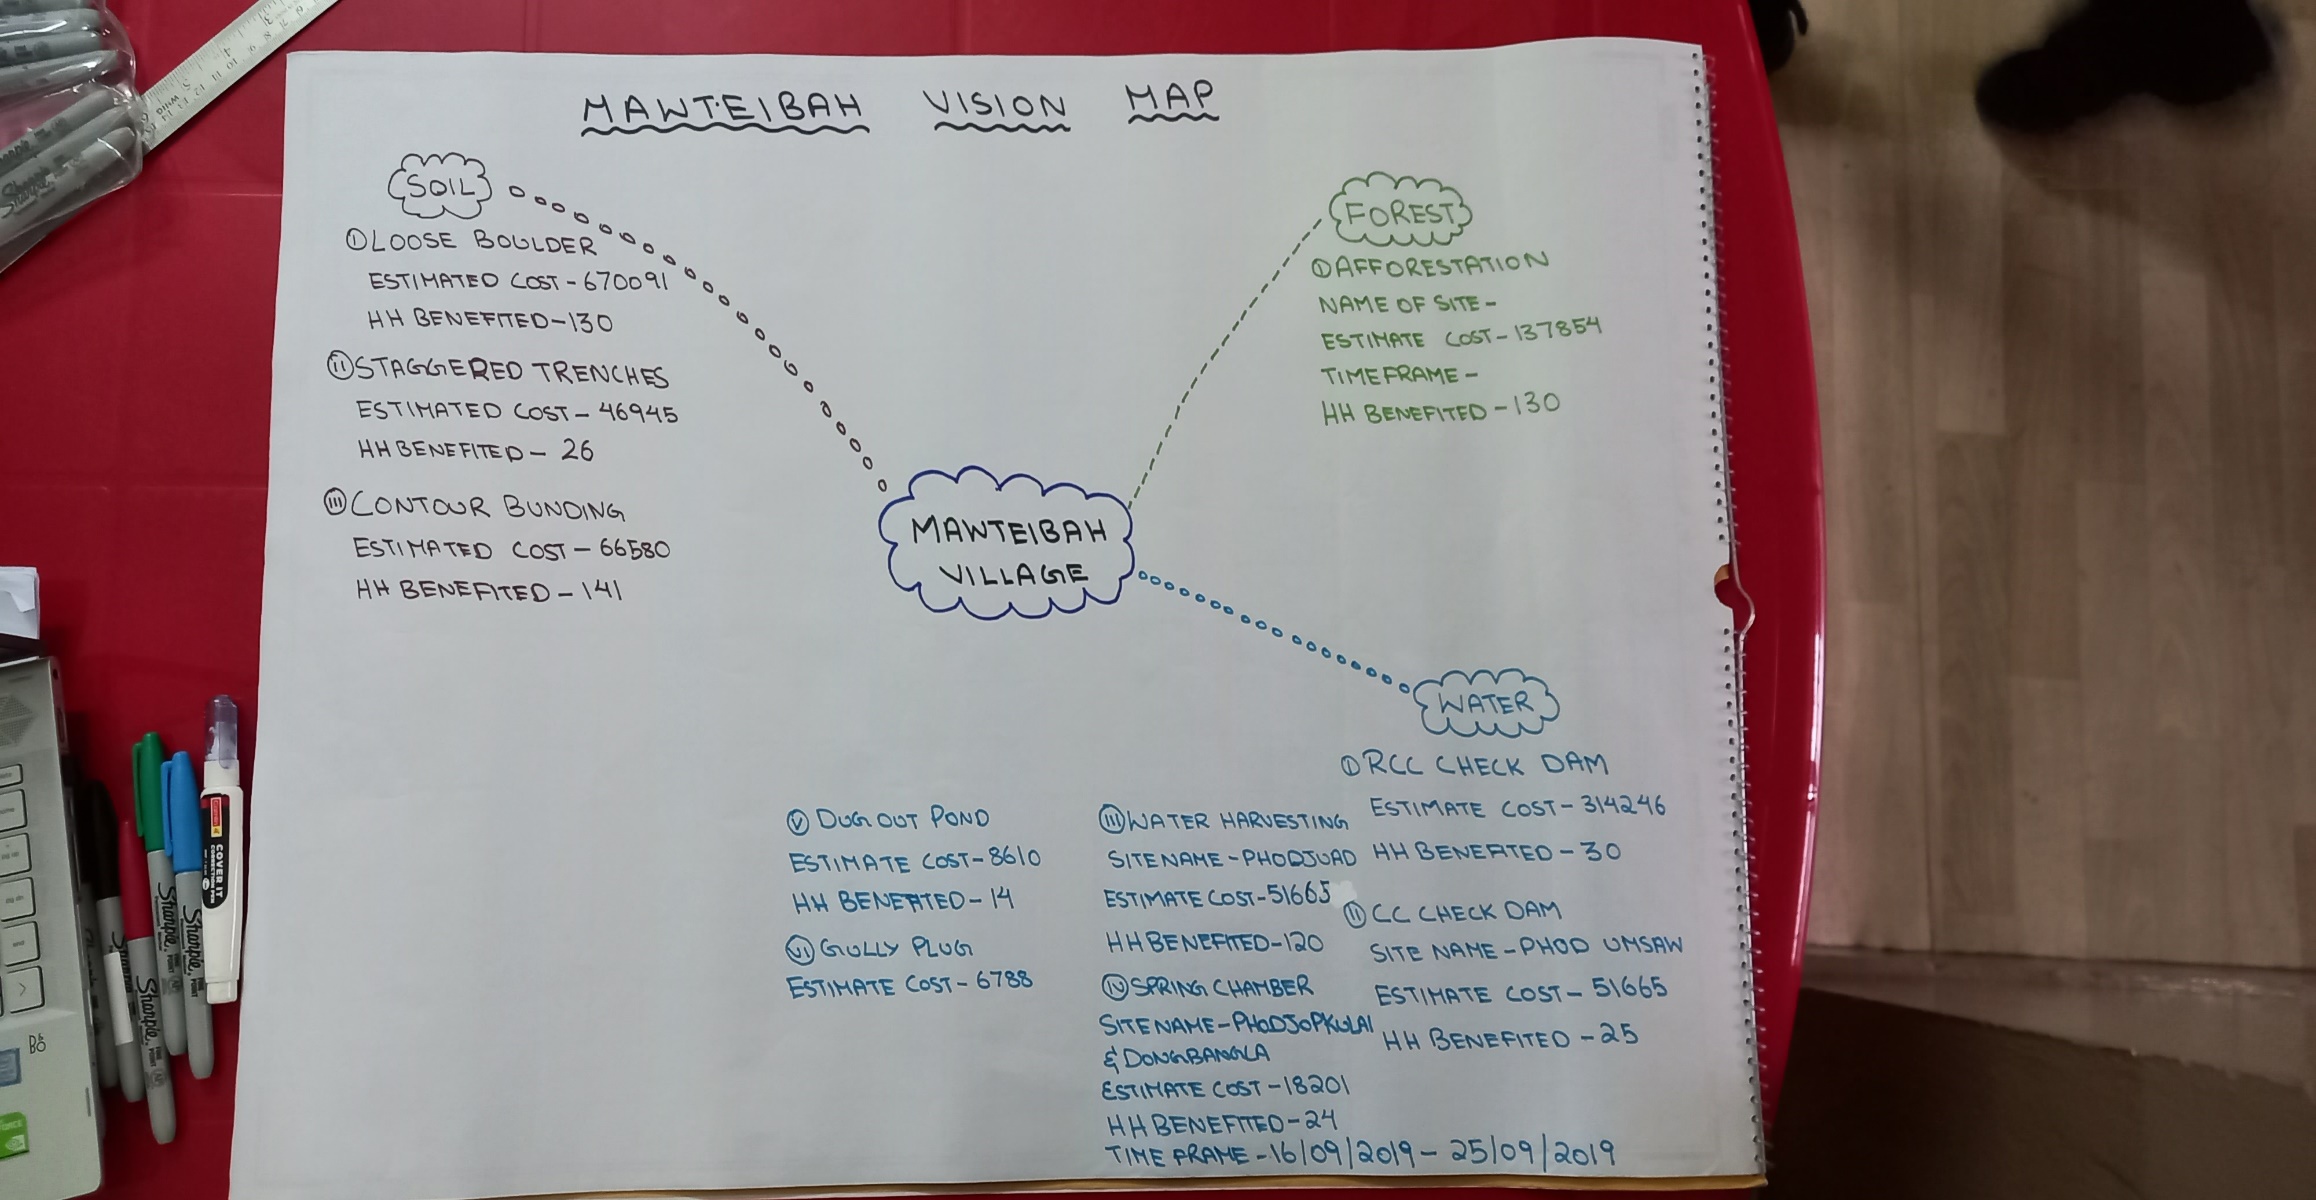 MAWTEIBAH VISION MAP
SOIL
① LOOSE BOULDER
ESTIMATED COST - 670091
HH BENEFITED - 130
⑪ STAGGERED TRENCHES
ESTIMATED COST - 46945
HH BENEFITED - 26
(III) CONTOUR BUNDING
ESTIMATED COST - 66580
HH BENEFITED - 141
FOREST
① AFFORESTATION
NAME OF SITE -
ESTIMATE COST - 137854
TIMEFRAME -
HH BENEFITED - 130
MAWTEIBAH
VILLAGE
WATER
① RCC CHECK DAM
ESTIMATE COST - 314246
HH BENEFITED - 30
⑪ CC CHECK DAM
SITE NAME - PHOD UMSAW
ESTIMATE COST - 51665
HH BENEFITED - 25
(III) WATER HARVESTING
SITE NAME - PHODJUAD
ESTIMATE COST - 51665
HH BENEFITED - 120
(IV) SPRING CHAMBER
SITE NAME - PHODJOPKULAI
& DONGBANGLA
ESTIMATE COST - 18201
HH BENEFITED - 24
TIME FRAME - 16/09/2019 - 25/09/2019
(V) DUGOUT POND
ESTIMATE COST - 8610
HH BENEFITED - 14
(VI) GULLY PLUG
ESTIMATE COST - 6788
Sharpie
Sharpie
Sharpie
Sharpie
COVER IT
CORRECTION PEN